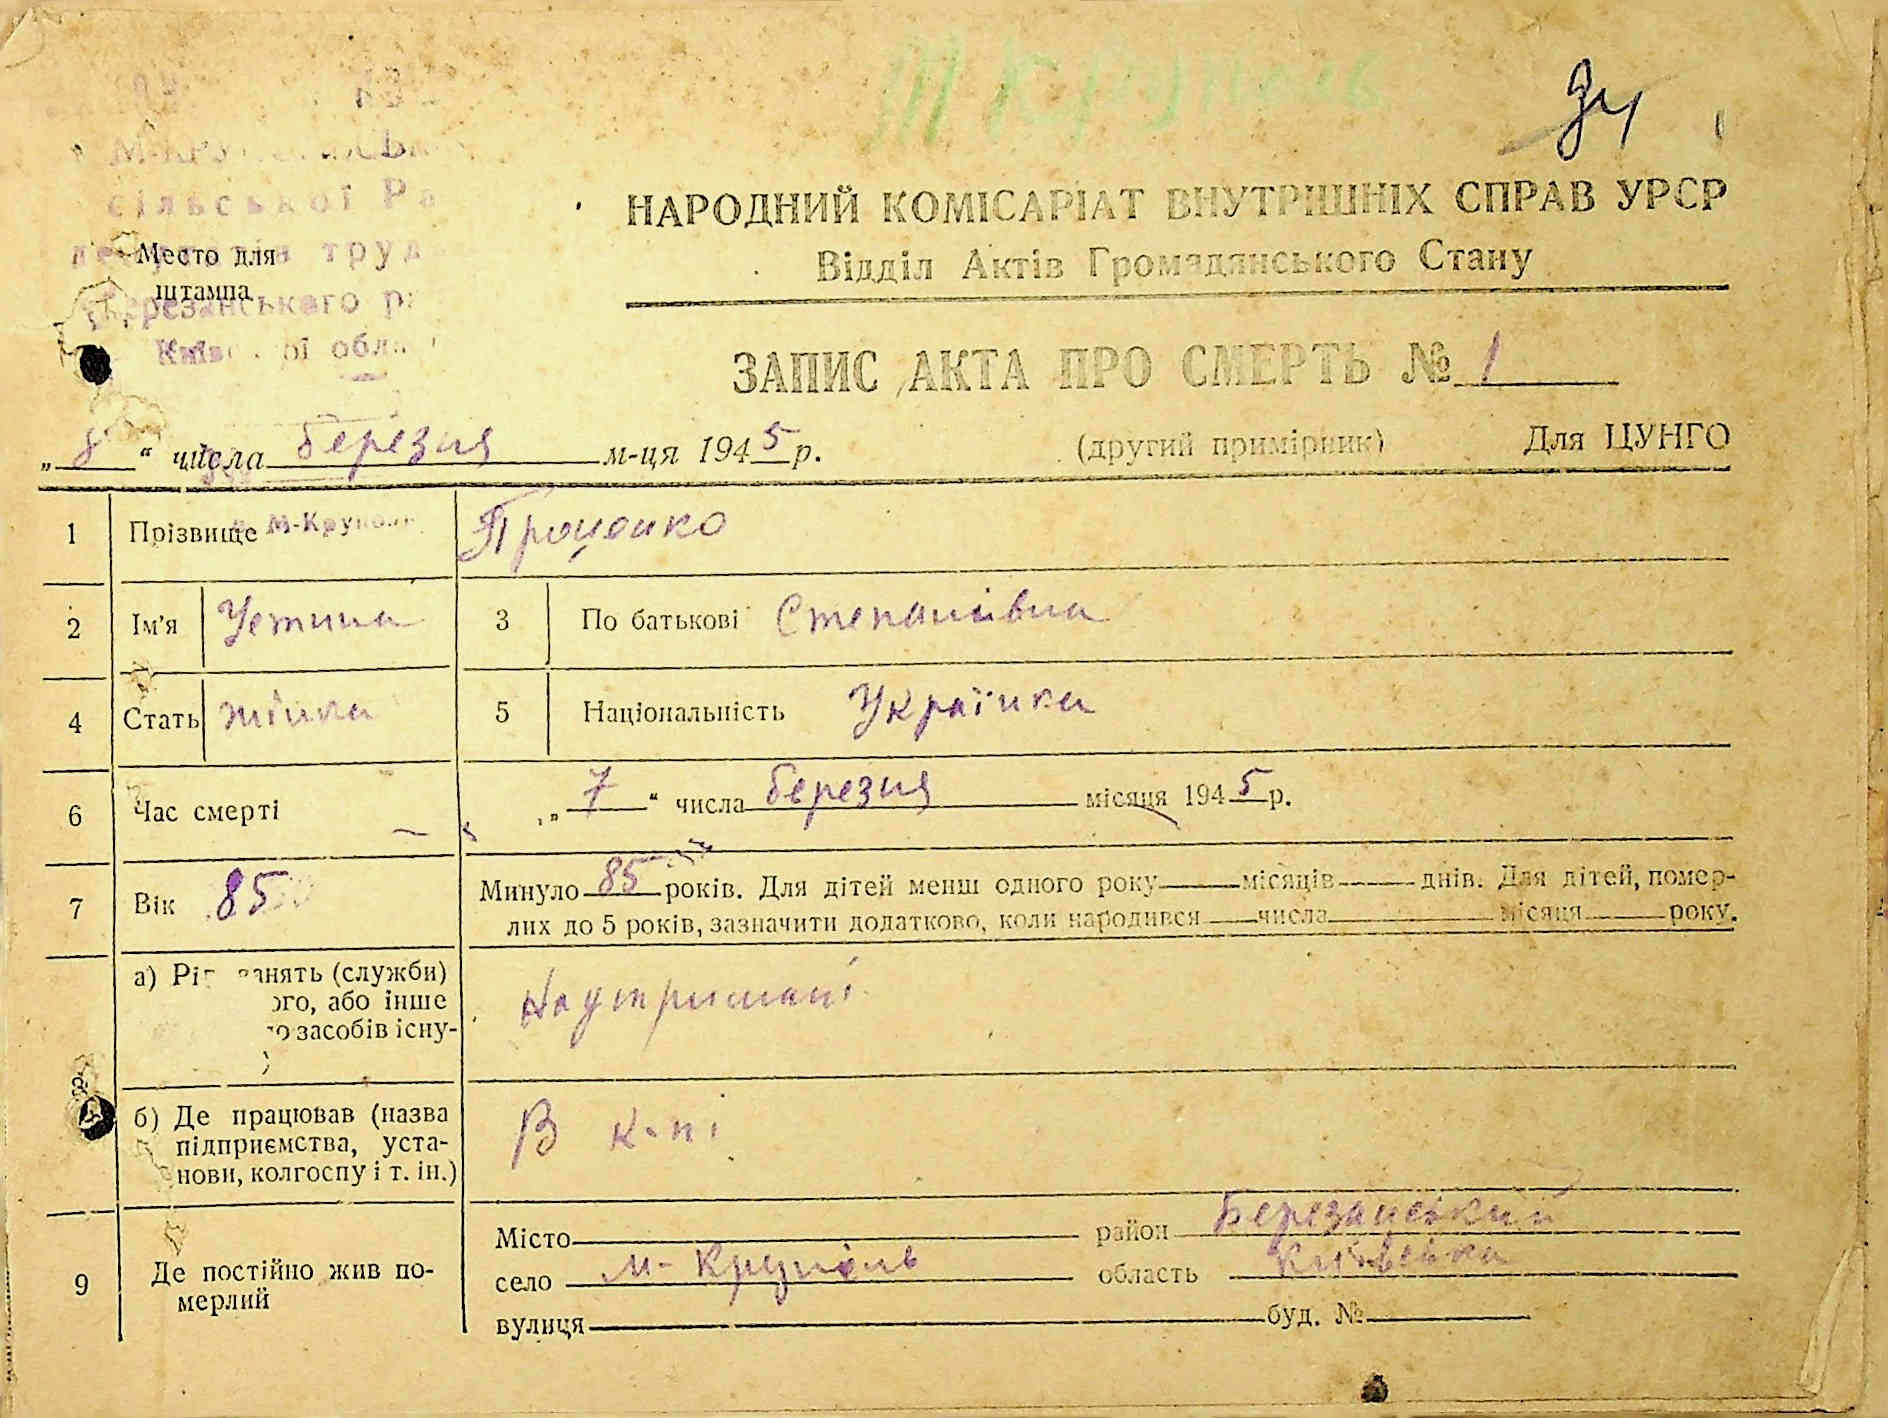 М Круполь
34
сільської Ра
труд
Березанського ра
Київської обла
Место для
штампа
НАРОДНИЙ КОМІСАРІАТ ВНУТРІШНІХ СПРАВ УРСР
Відділ Актів Громадянського Стану
ЗАПИС АКТА ПРО СМЕРТЬ № 1
„ 8 “ числа березня м-ця 1945 р.
(другий примірник) Для ЦУНГО
1 Прізвище М-Круполь Проценко
2 Ім'я Устина 3 По батькові Степанівна
4 Стать жінка 5 Національність Українка
6 Час смерті „ 7 “ числа березня місяця 1945 р.
7 Вік 85 Минуло 85 років. Для дітей менш одного року місяців днів. Для дітей, помер-
лих до 5 років, зазначити додатково, коли народився числа місяця року.
а) занять (служби)
ого, або інше
о засобів існу-
На утриманні
б) Де працював (назва
підприємства, уста-
нови, колгоспу і т. ін.)
В к-пі
9 Де постійно жив по-
мерлий
Місто район Березанський
село М-Круполь область Київська
вулиця буд. №